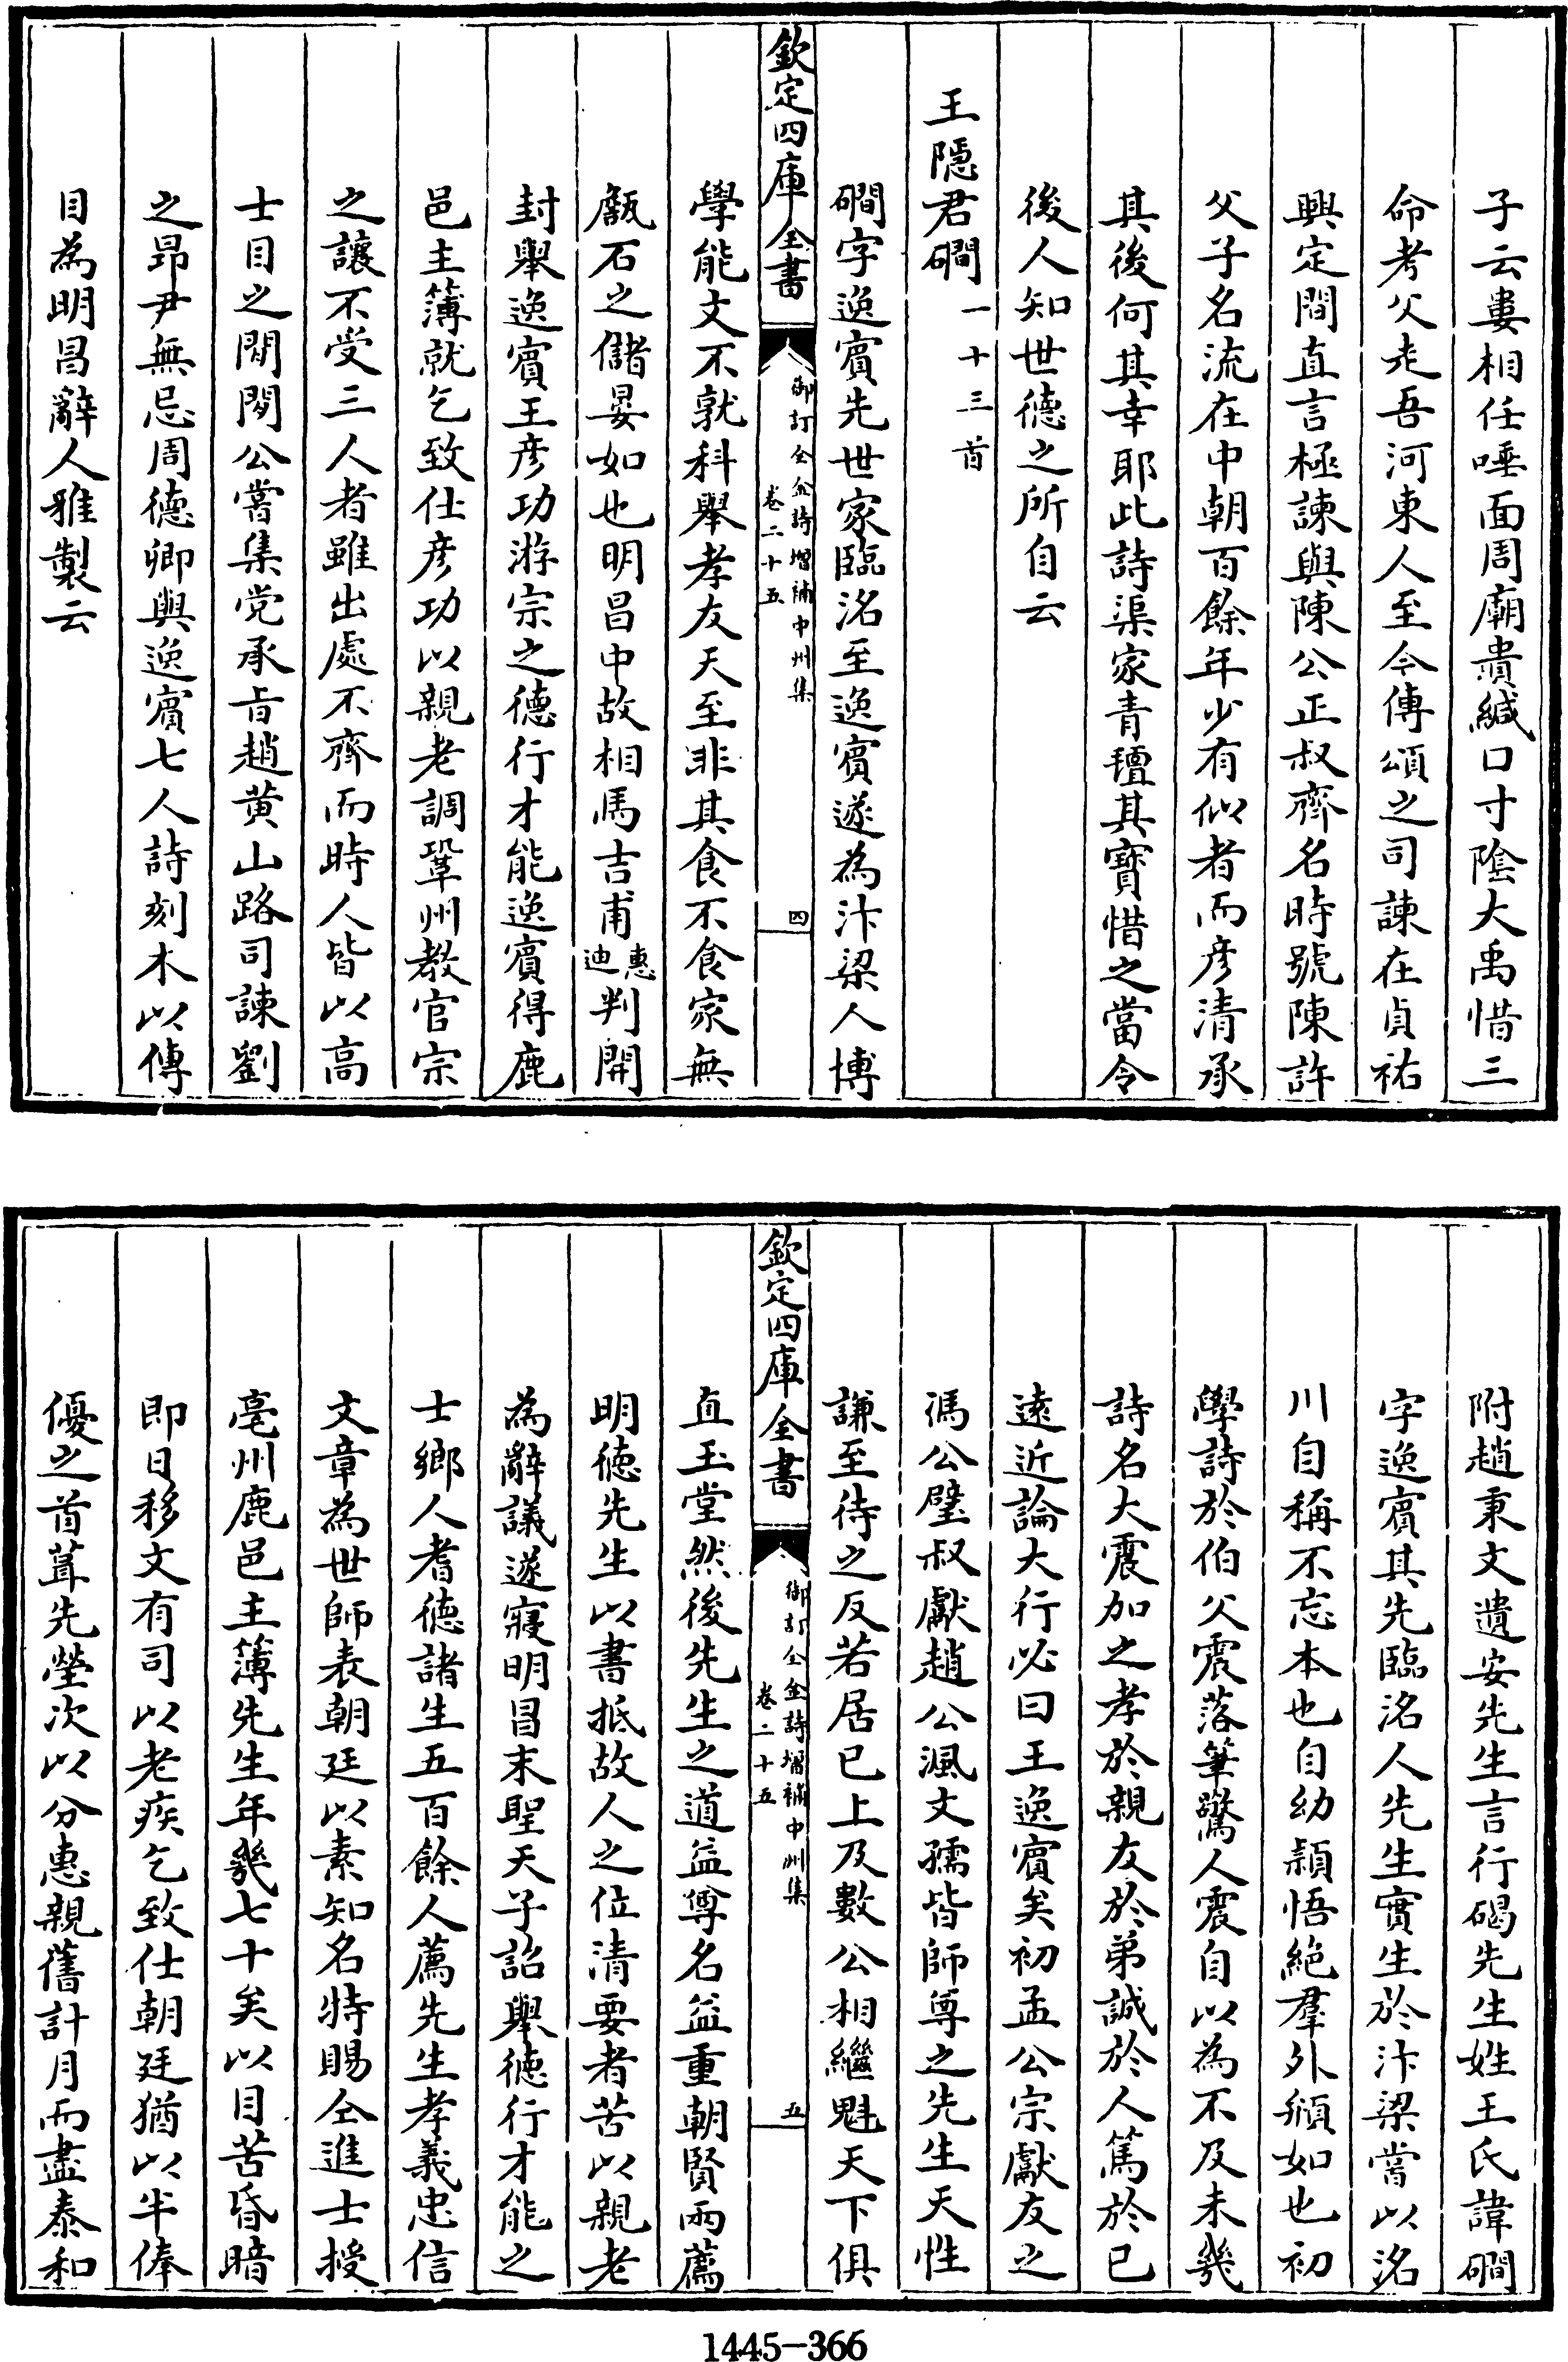 子云婁相任唾面周廟貴緘口寸陰大禹惜三
命考父走吾河東人至今傳頌之司諫在貞祐
興定間直言極諫與陳公正叔齊名時號陳許
父子名流在中朝百餘年少有似者而彦清承
其後何其幸耶此詩渠家青氊其寳惜之當令
後人知世徳之所自云
王隠君磵一十三首
磵字逸賓先世家臨洺至逸賓遂為汴梁人博
欽定四庫全書
御訂全金詩增補中州集
卷二十五
四
學能文不就科舉孝友天至非其食不食家無
甔石之儲晏如也明昌中故相馬吉甫惠迪判開
封舉逸賓王彦功游宗之徳行才能逸賓得鹿
邑主簿就乞致仕彦功以親老調鞏州教官宗
之讓不受三人者雖出處不齊而時人皆以高
士目之閒閒公嘗集党承旨趙黄山路司諫劉
之昂尹無忌周徳卿與逸賓七人詩刻木以傳
目為明昌辭人雅製云
附趙秉文遺安先生言行碣先生姓王氏諱磵
字逸賓其先臨洺人先生實生於汴梁嘗以洺
川自稱不忘本也自幼穎悟絶羣外頎如也初
學詩於伯父震落筆驚人震自以為不及未幾
詩名大震加之孝於親友於弟誠於人篤於已
遠近論大行必曰王逸賓矣初孟公宗獻友之
馮公璧叔獻趙公渢文孺皆師尊之先生天性
謙至待之反若居已上及數公相繼魁天下俱
欽定四庫全書
御訂全金詩增補中州集
卷二十五
五
直玉堂然後先生之道益尊名益重朝賢兩薦
明徳先生以書抵故人之位清要者苦以親老
為辭議遂寢明昌末聖天子詔舉徳行才能之
士鄉人耆徳諸生五百餘人薦先生孝義忠信
文章為世師表朝廷以素知名特賜仝進士授
亳州鹿邑主簿先生年幾七十矣以目苦昏暗
即日移文有司以老疾乞致仕朝廷猶以半俸
優之首葺先塋次以分惠親舊計月而盡泰和
1445-366